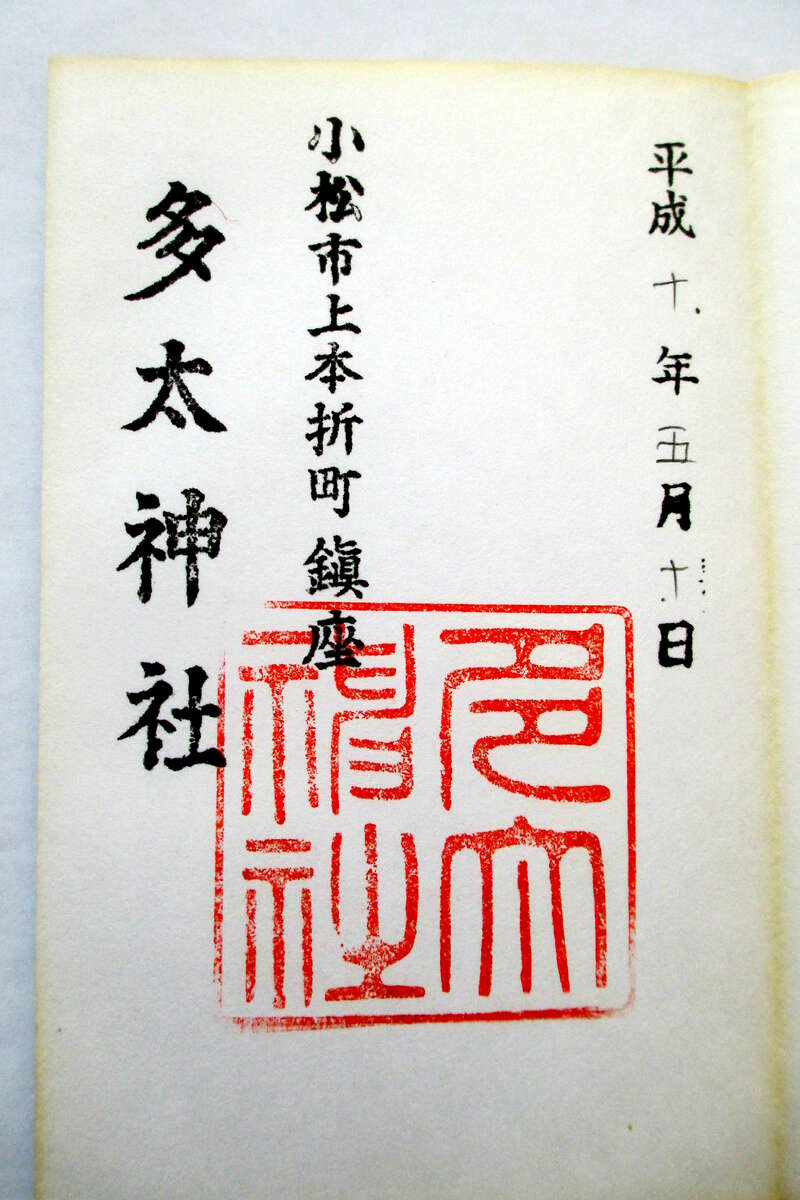 平成十年五月十日
小松市上本折町鎮座
多太神社
多太神社